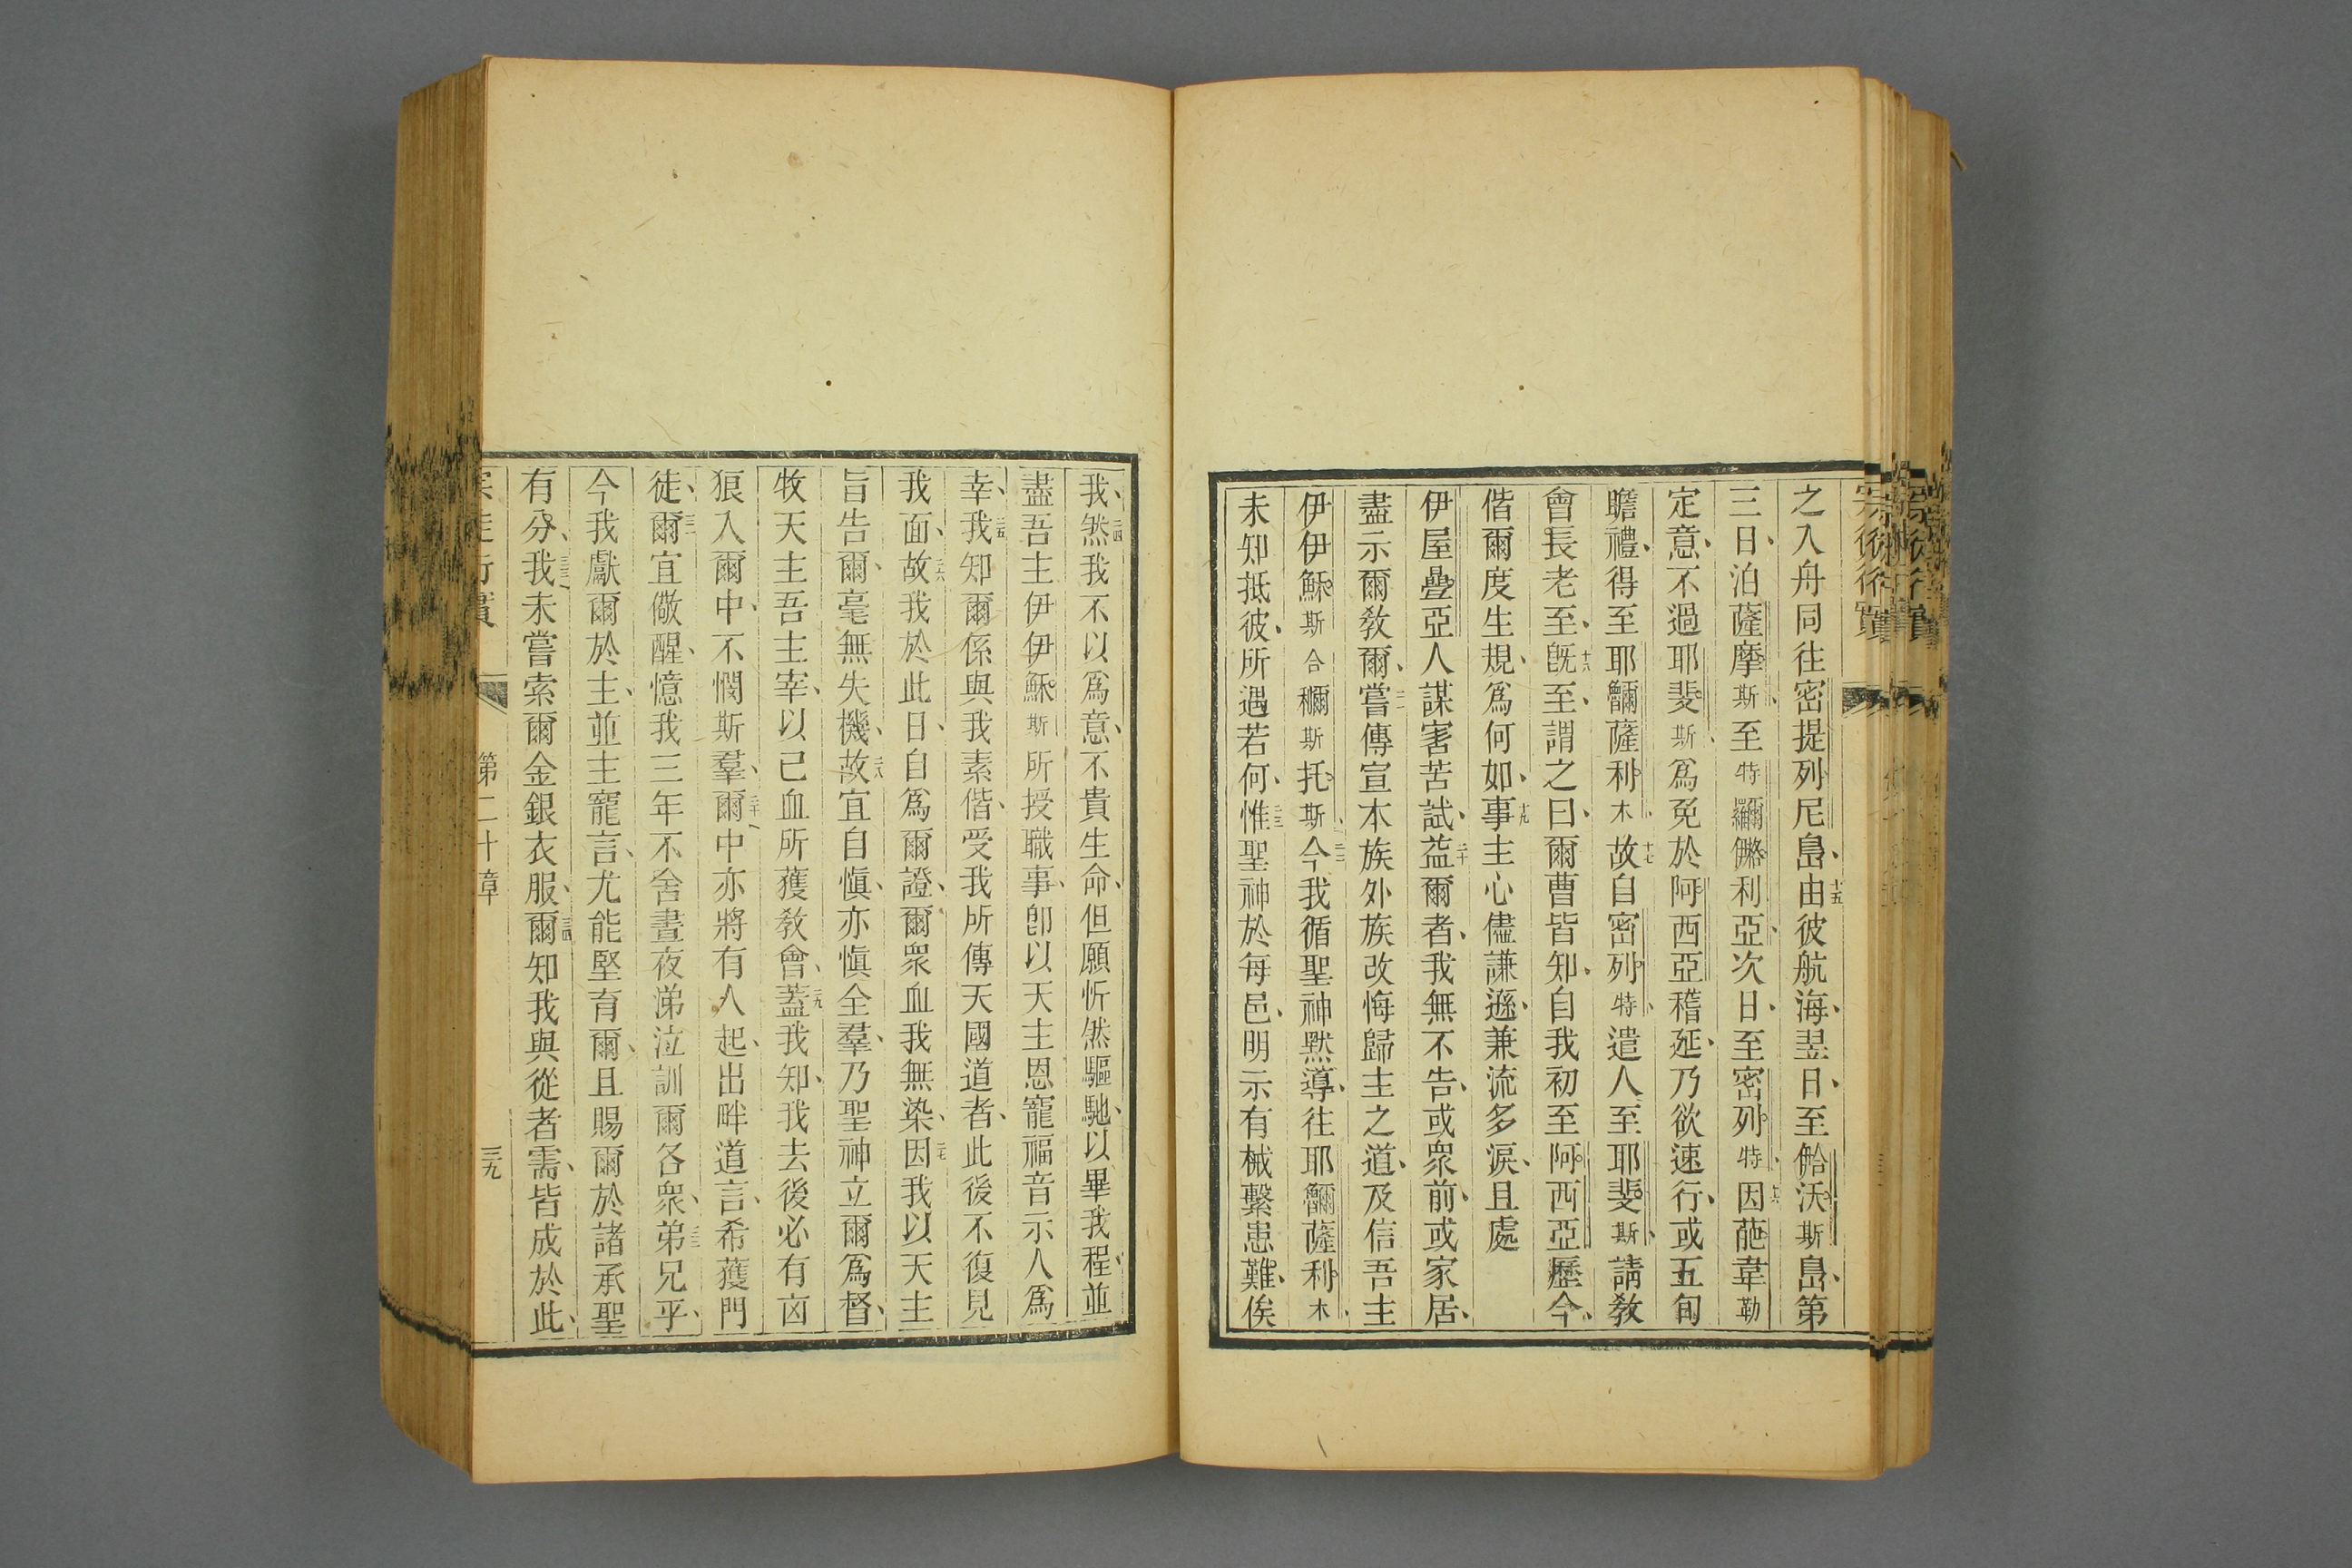 宗徒行實
之入舟同往密提列尼島、十五由彼航海、翌日、至𬾀沃斯島、第
三日、泊薩摩斯、至特𮉫𠐻利亞、次日、至密列特、十六因葩韋勒
定意、不過耶斐斯、爲免於阿西亞稽延、乃欲速行、或五旬
瞻禮、得至耶薩利木、十七故自密列特、遣人至耶斐斯、請敎
會長老至、十八旣至、謂之曰、爾曹皆知、自我初至阿西亞、歷今、
偕爾度生規、爲何如、十九事主心儘謙遜、兼流多淚、且處
伊屋疊亞人謀害苦試、二十益爾者、我無不告、或眾前、或家居、
盡示爾敎爾、二一嘗傳宣本族外族改悔歸主之道、及信吾主
伊伊穌斯合穪斯托斯、二二今我循聖神默導、往耶薩利木、
未知抵彼、所遇若何、二三惟聖神於每邑、明示有械繫患難、俟
我、二四然我不以爲意、不貴生命、但願忻然驅馳、以畢我程、並
盡吾主伊伊穌斯所授職事、卽以天主恩寵福音示人爲
幸、二五我知爾係與我素偕、受我所傳天國道者、此後不復見
我面、二六故我於此日、自爲爾證、爾眾血我無染、二七因我以天主
旨告爾、毫無失機、二八故宜自愼、亦愼全羣、乃聖神立爾爲督、
牧天主吾主宰、以己血所獲敎會、二九蓋我知、我去後必有囟
狼入爾中、不憫斯羣、三十爾中亦將有人起、出畔道言、希獲門
徒、三一爾宜儆醒、憶我三年不舍晝夜涕泣訓爾各眾、三二弟兄乎、
今我獻爾於主、並主寵言、尤能堅育爾、且賜爾於諸承聖
有分、三三我未嘗索爾金銀衣服、三四爾知我與從者需、皆成於此、
宗徒行實 第二十章 三九